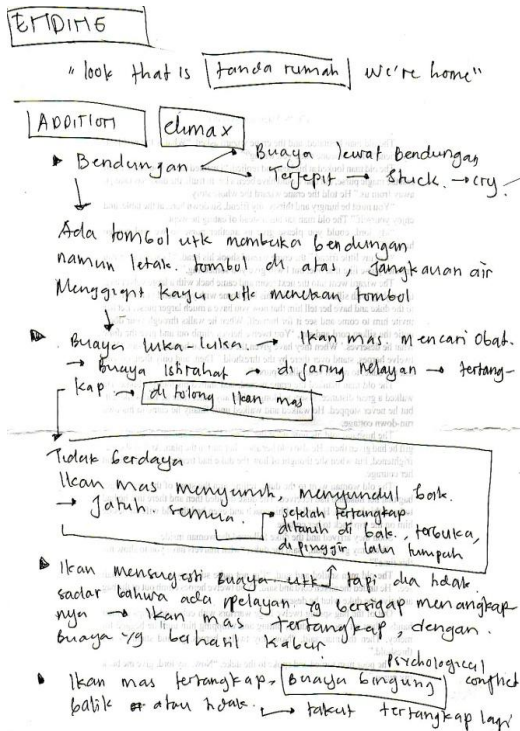 ENDING
"look that is tanda rumah we're home"
ADDITION climax
Bendungan → Buaya lewat bendungan
→ Terjepit → Stuck. → cry.
Ada tombol utk membuka bendungan
namun letak. tombol di atas, jangkauan air
Menggigit kayu utk menekan tombol
Buaya luka-luka. → Ikan mas. mencari Obat.
→ Buaya Istirahat → di jaring nelayan → tertang-
kap → di tolong Ikan mas
Tidak berdaya
Ikan mas menyuruh, menyundul bak.
→ Jatuh semua. → setelah tertangkap
ditaruh di bak, terbuka,
di pinggir lalu tumpah
Ikan mensugesti Buaya utk ↑ tapi dia tidak
sadar bahwa ada nelayan yg bersigap menangkap
nya → Ikan mas tertangkap, dengan.
Buaya yg berhasil kabur
psychological
Ikan mas tertangkap. Buaya bingung conflict
balik atau tidak. → takut tertangkap lagi